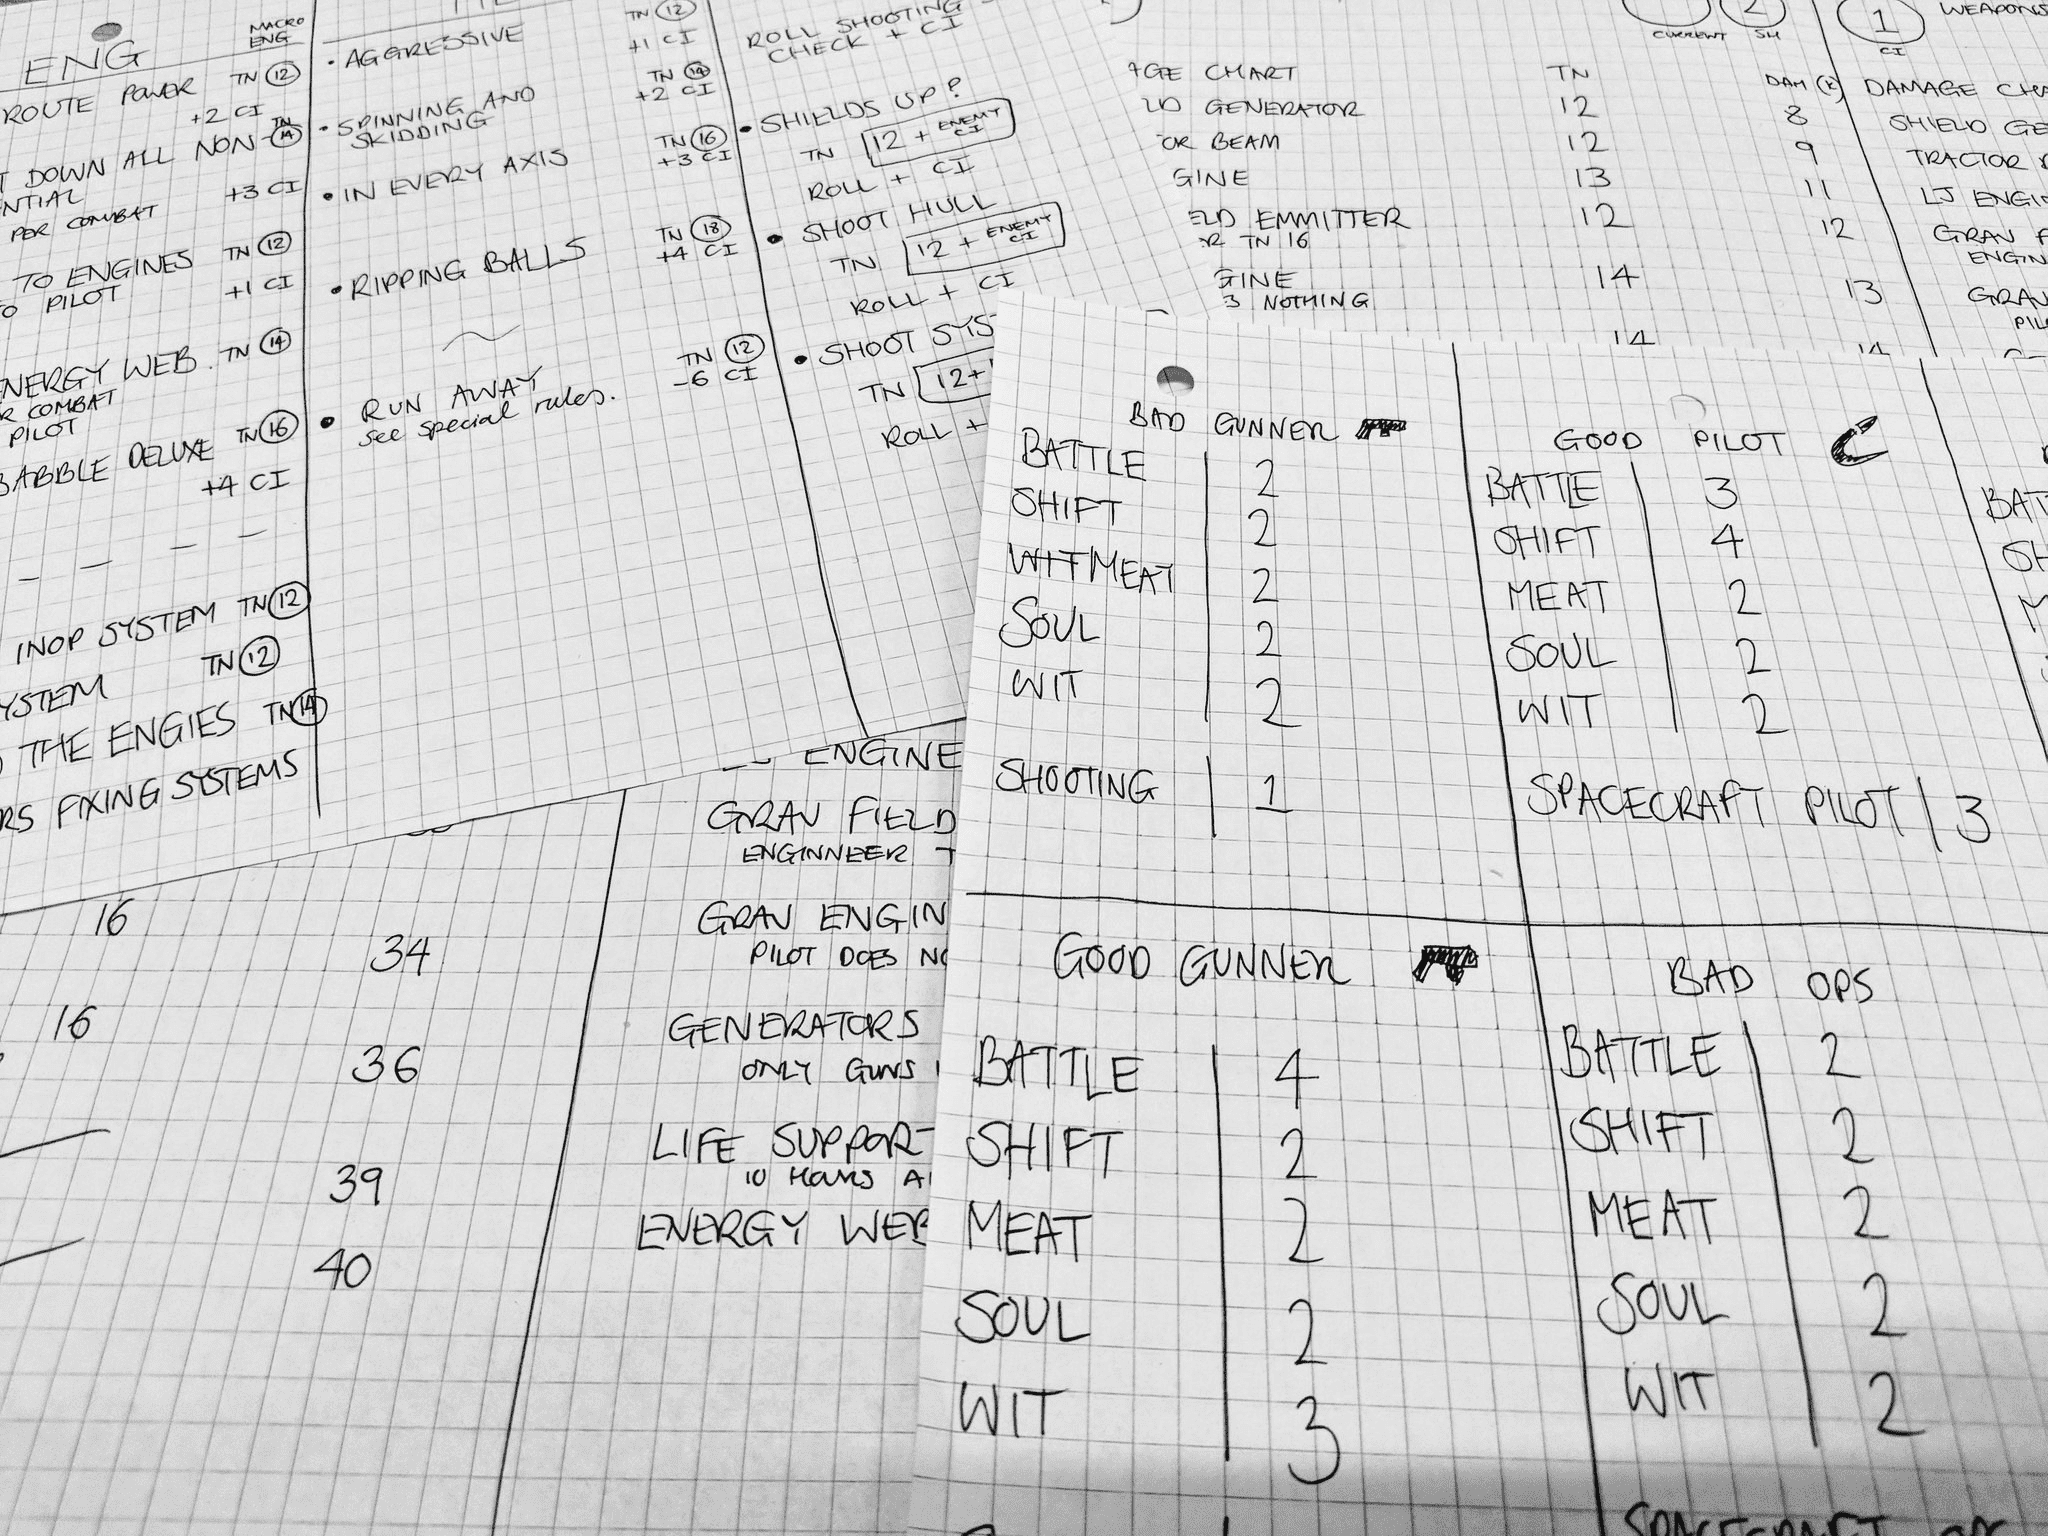 ENG
MACRO
ENG
ROUTE POWER TN 12
+2 CI
DOWN ALL NON- TN 14
PER COMBAT +3 CI
TO ENGINES TN 12
PILOT +1 CI
ENERGY WEB. TN 14
COMBAT
PILOT
BABBLE DELUXE TN 16
+4 CI
INOP SYSTEM TN 12
TN 12
THE ENGIES TN 14
FIXING SYSTEMS
TN 12
• AGGRESSIVE +1 CI
TN 14
• SPINNING AND +2 CI
SKIDDING
TN 16
• IN EVERY AXIS +3 CI
TN 18
• RIPPING BALLS +4 CI
TN 12
• RUN AWAY -6 CI
see special rules.
ROLL SHOOTING
CHECK + CI
• SHIELDS UP?
TN 12 + ENEMY CI
ROLL + CI
• SHOOT HULL
TN 12 + ENEMY CI
ROLL + CI
• SHOOT
TN 12+
ROLL +
CURRENT
2
SH
1
CI
CHART TN DAM (K)
GENERATOR 12 8
BEAM 12 9
13 11
EMMITTER 12 12
TN 16
14 13
3 NOTHING
14 14
DAMAGE
SHIELD
TRACTOR
LJ
GRAV
BAD GUNNER
BATTLE 2
SHIFT 2
WIT MEAT 2
SOUL 2
WIT 2
SHOOTING 1
GOOD PILOT
BATTLE 3
SHIFT 4
MEAT 2
SOUL 2
WIT 2
SPACECRAFT PILOT 3
GOOD GUNNER
BATTLE 4
SHIFT 2
MEAT 2
SOUL 2
WIT 3
BAD OPS
BATTLE 2
SHIFT 2
MEAT 2
SOUL 2
WIT 2
SPACECRAFT
16
34
16
36
39
40
GRAV FIELD
ENGINNEER
GRAV
PILOT DOES
GENERATORS
ONLY GUNS
LIFE SUPPORT
10 HOURS
ENERGY WEB